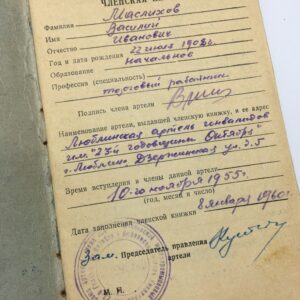 ЧЛЕНСКАЯ
Фамилия Маслихов
Имя Василий
Отчество Иванович
Год и дата рождения 22 июля 1908г.
Образование начальное
Профессия (специальность)
торговый работник
Подпись члена артели
Наименование артели, выдавшей членскую книжку, и ее адрес
Люблинская артель инвалидов
им "23й годовщины Октября"
г. Люблино Дзержинская ул. д. 5
Время вступления в члены данной артели
10-го ноября 1955г.
(год, месяц и число)
Дата заполнения членской книжки 8 января 1960г.
Зам. Председатель правления
артели
М. П.